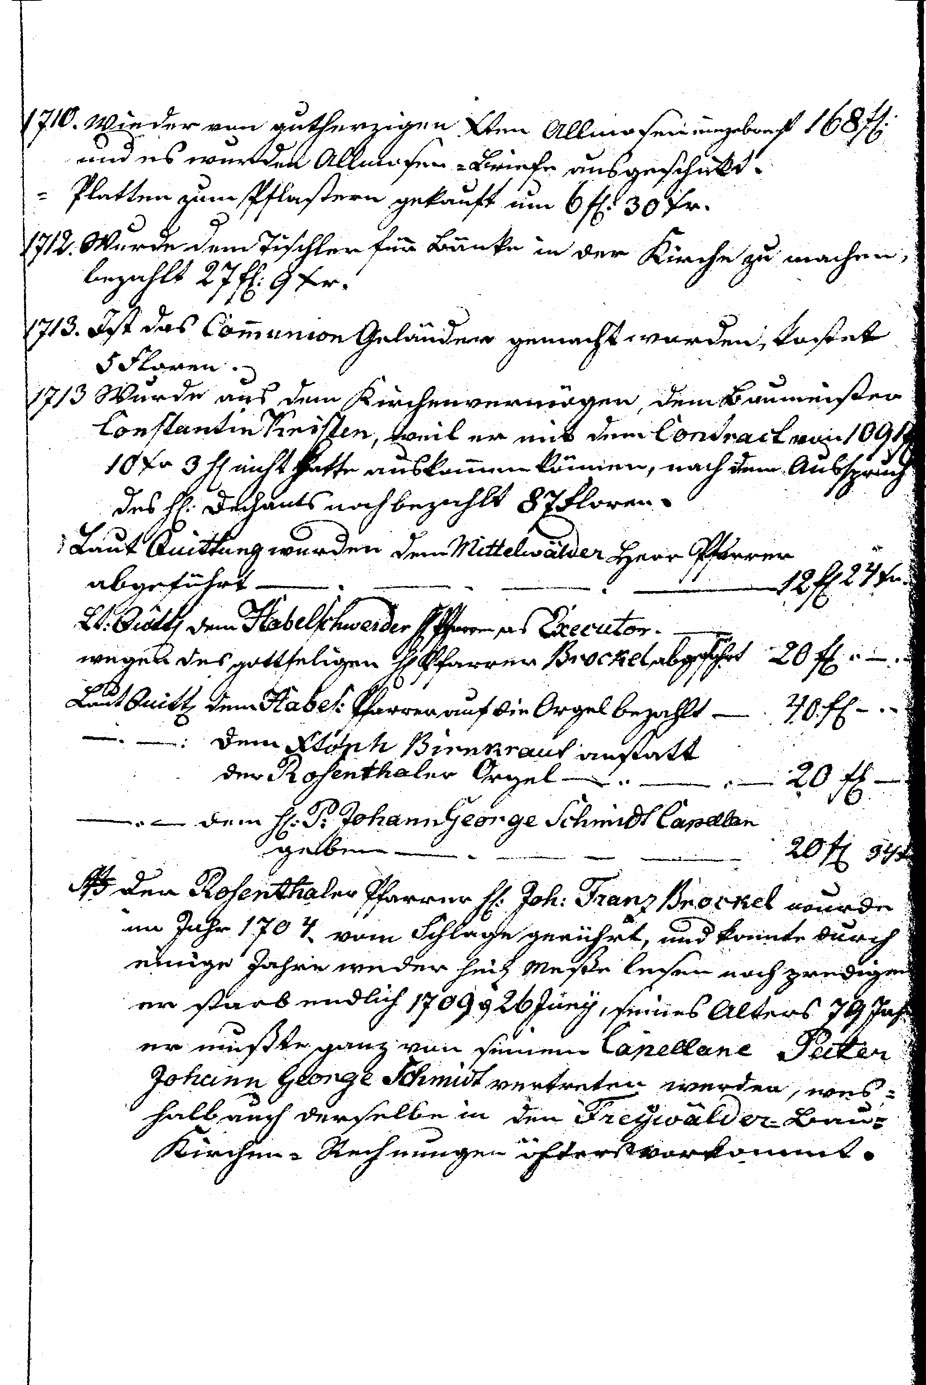 1710. Wieder von gutherzigen Xten Allmosen eingebracht 168 fl:
und es wurden Allmosen-Briefe ausgeschickt.
= Platten zum Pflastern gekauft um 6 fl: 30 Xr.
1712. Wurde dem Tischler für Bänke in der Kirche zu machen,
bezahlt 27 fl: 9 Xr.
1713. Ist das Com̄union Geländer gemacht worden, kostet
5 Floren.
1713 Wurde aus dem Kirchenvermögen, dem Baumeister
Constantin Kristen, weil er mit dem Contract von 1091 fl
10 Xr 3 hl nicht hatte auskommen können, nach dem Ausspruch
des H: Dechants noch bezahlt 87 Floren.
Laut Quittung wurden dem Mittelwälder Herr Pfarrer
abgeführt — . — — . — 12 fl 24 Xr.
Lt: Quittg dem Habelschwerder H Pfarrer as Executor. —
wegen des gottseligen H Pfarrer Brockel abgeführt 20 fl . — .
Laut Quittg dem Habel: Pfarrer auf die Orgel bezahlt — 40. fl — . .
— . — : dem Xstoph Birnkraut anstatt
der Rosenthaler Orgel — . . — . — 20 fl —
— . — dem H: P: Johann George Schmidt Capellan
geben — . — — 20 fl 34 X
NB Der Rosenthaler Pfarrer H: Joh: Franz Brockel wurde
im Jahr 1704 vom Schlage gerührt, und konnte durch
einige Jahre weder heil Meße lesen noch predigen
er starb endlich 1709 d 26 Juny, seines Alters 79 Jah
er mußte ganz von seinem Capellane Pater
Johann George Schmidt vertreten werden, wes=
halb auch derselbe in den Freywälder-Bau=
Kirchen-Rechnungen öfters vorkommt.